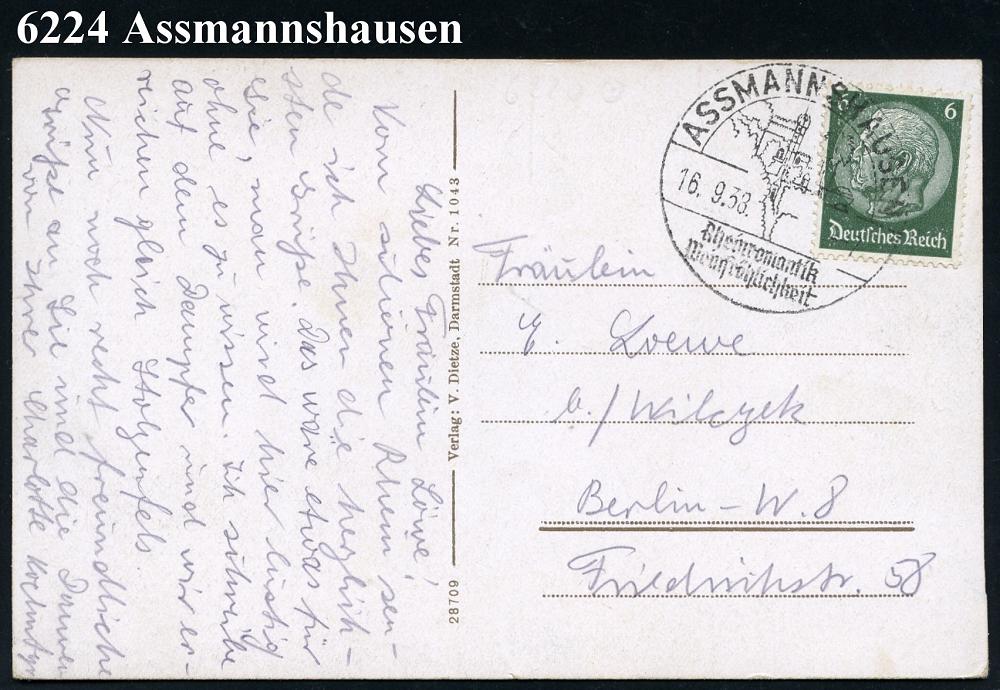 6224 Assmannshausen
Liebes Fräulein Löwe!
Vom schönen Rhein sen-
de ich Ihnen die herzlich-
sten Grüße. Das wäre etwas für
Sie, man wird hier lustig
ohne es zu wissen. Ich schreibe
auf dem Dampfer und wir er-
reichen gleich Stolzenfels.
Nun noch recht freundliche
Grüße an Sie und die Damen
von Ihrer Charlotte
28709
Verlag: V. Dietze, Darmstadt Nr. 1043
ASSMANNSHAUSEN
16.9.38.
Rheinromantik
Weinfröhlichkeit
6
Deutsches Reich
Fräulein
E. Loewe
b./ Wilczek
Berlin - W. 8
Friedrichstr. 58